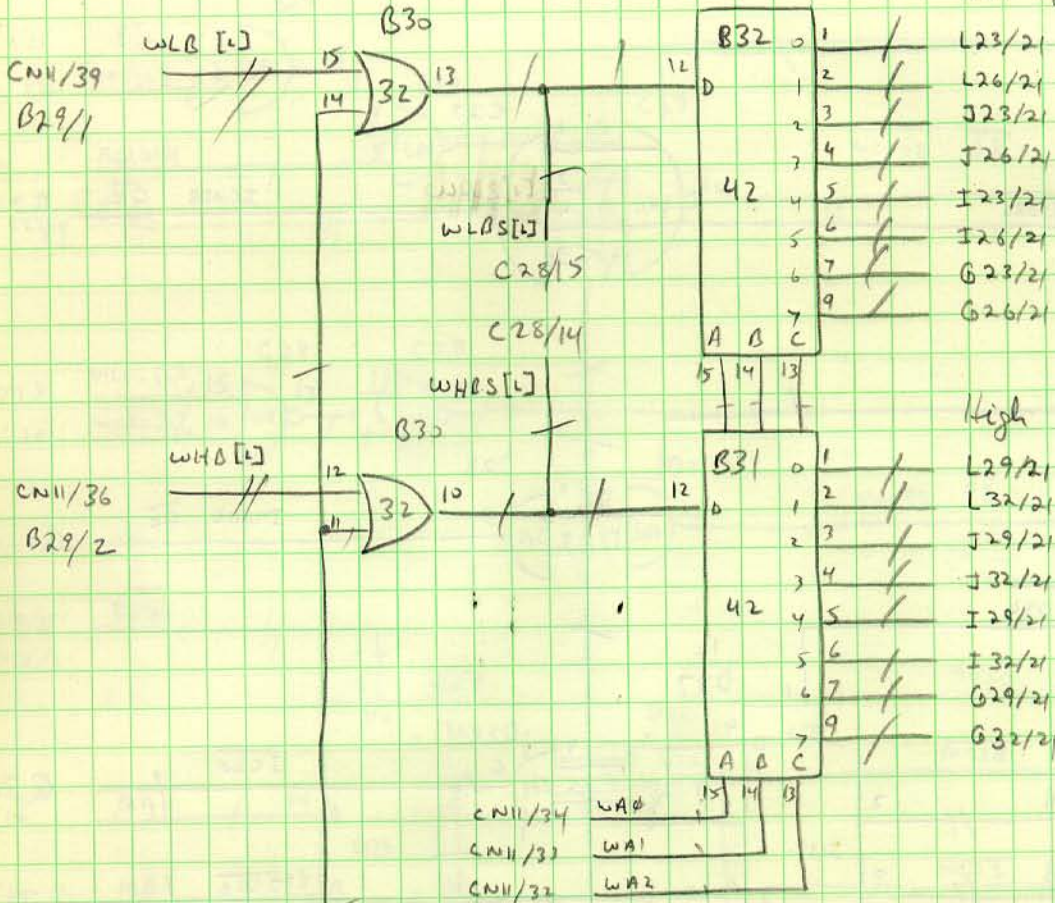 B30
WLB [L]
CN11/39
B29/1
15
14
32
13
12
B32
D
42
0 1 L23/21
1 2 L26/21
2 3 J23/21
3 4 J26/21
4 5 I23/21
5 6 I26/21
6 7 G23/21
7 9 G26/21
A B C
15 14 13
WLBS[L]
C28/15
C28/14
WHBS[L]
High
B30
WHB [L]
CN11/36
B29/2
12
11
32
10
12
B31
D
42
0 1 L29/21
1 2 L32/21
2 3 J29/21
3 4 J32/21
4 5 I29/21
5 6 I32/21
6 7 G29/21
7 9 G32/21
A B C
15 14 13
CN11/34 WAφ
CN11/33 WA1
CN11/32 WA2